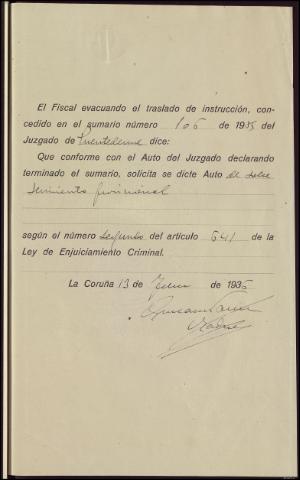 El Fiscal evacuando el traslado de instrucción, con-
cedido en el sumario número 106 de 1935 del
Juzgado de Puentedeume dice:
Que conforme con el Auto del Juzgado declarando
terminado el sumario, solicita se dicte Auto de sobre
seimiento provisional
según el número segundo del artículo 641 de la
Ley de Enjuiciamiento Criminal.
La Coruña 13 de de 1936